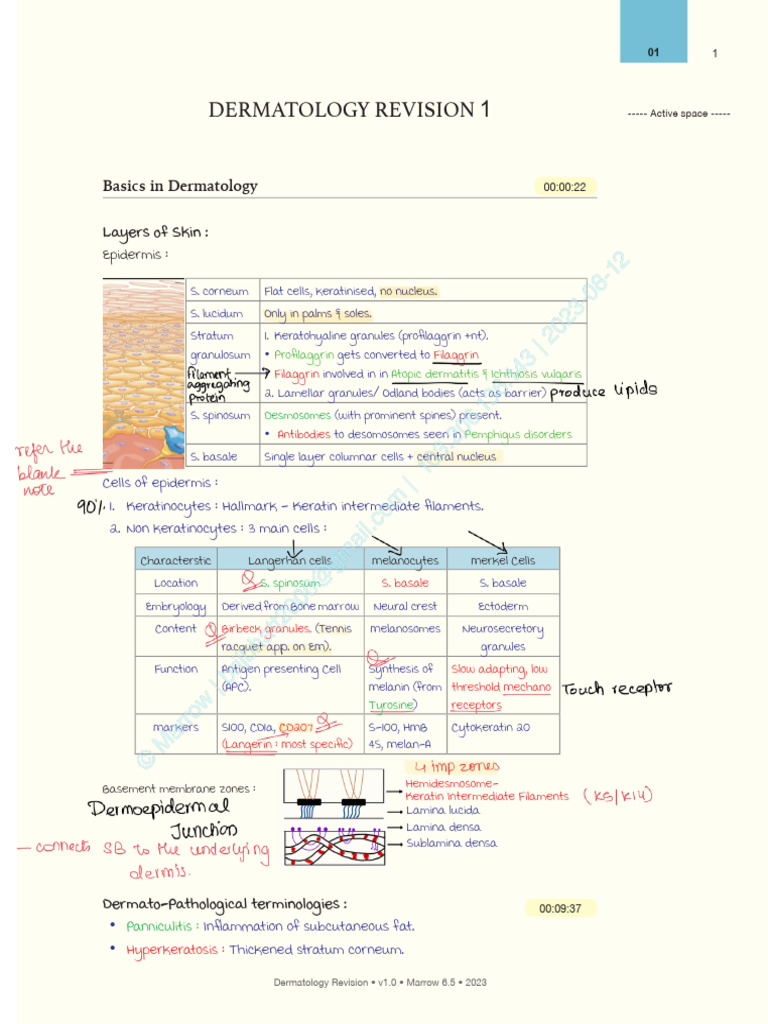 01
1
DERMATOLOGY REVISION 1
----- Active space -----
Basics in Dermatology
00:00:22
Layers of Skin :
Epidermis :
S. corneum Flat cells, keratinised, no nucleus.
S. lucidum Only in palms & soles.
Stratum granulosum 1. Keratohyaline granules (profilaggrin +nt).
• Profilaggrin gets converted to Filaggrin
filament aggregating protein
Filaggrin involved in in Atopic dermatitis & Ichthiosis vulgaris
2. Lamellar granules/ Odland bodies (acts as barrier) produce lipids
S. spinosum Desmosomes (with prominent spines) present.
• Antibodies to desomosomes seen in Pemphigus disorders
S. basale Single layer columnar cells + central nucleus
refer the
blank
note
Cells of epidermis :
90% 1. Keratinocytes : Hallmark - Keratin intermediate filaments.
2. Non keratinocytes : 3 main cells :
Characterstic Langerhan cells melanocytes merkel Cells
Location Q S. spinosum S. basale S. basale
Embryology Derived from Bone marrow Neural crest Ectoderm
Content Q Birbeck granules. (Tennis racquet app. on Em). melanosomes Neurosecretory granules
Function Antigen presenting Cell (APC). Q Synthesis of melanin (from Tyrosine) Slow adapting, low threshold mechano receptors Touch receptor
markers S100, CD1a, CD207 Q (Langerin : most specific) S-100, HmB 45, melan-A Cytokeratin 20
4 imp zones
Basement membrane zones :
Dermoepidermal
Junction
- connects SB to the underlying
dermis.
Hemidesmosome-
Keratin Intermediate Filaments (K5/K14)
Lamina lucida
Lamina densa
Sublamina densa
Dermato-Pathological terminologies :
00:09:37
• Panniculitis : Inflammation of subcutaneous fat.
• Hyperkeratosis : Thickened stratum corneum.
Dermatology Revision • v1.0 • Marrow 6.5 • 2023